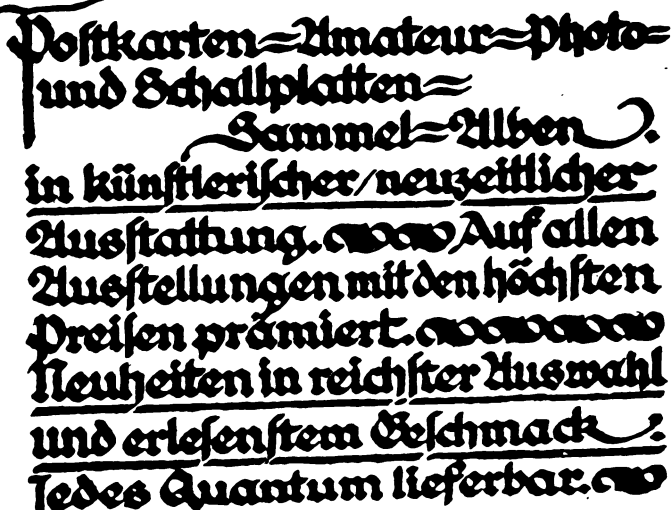 Postkarten=Amateur=Photo=
und Schallplatten=
Sammel=Alben.
in künstlerischer/neuzeitlicher
Ausstattung. Auf allen
Ausstellungen mit den höchsten
Preisen prämiert.
Neuheiten in reichster Auswahl
und erlesenstem Geschmack.
Jedes Quantum lieferbar.